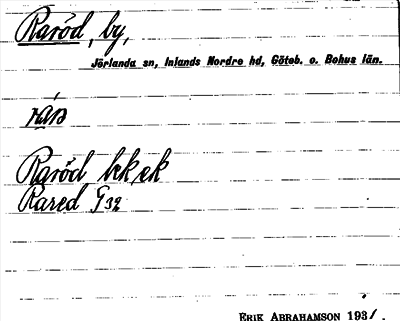 Raröd, by,
Jörlanda sn, Inlands Nordre hd, Göteb. o. Bohus län.
Raröd bk, ek
Rared G32
ERIK ABRAHAMSON 1931.